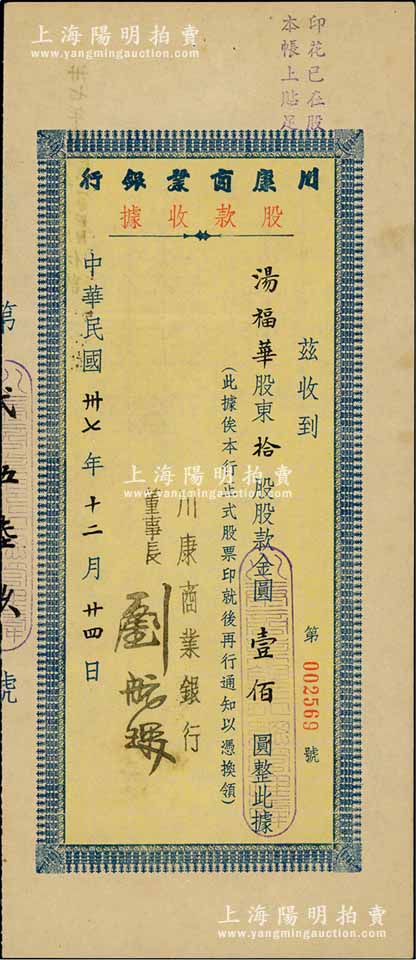 上海陽明拍賣
www.yangmingauction.com
印花已在股
本帳上貼足
川康商業銀行
股款收據
茲收到
湯福華股東拾股股款金圓壹佰圓整此據
(此據俟本行正式股票印就後再行通知以憑換領)
第002569號
川康商業銀行
董事長
劉航琛
中華民國卅七年十二月廿四日
第貳伍陸玖號
上海陽明拍賣
www.yangmingauction.com
上海陽明拍賣
www.yangmingauction.com
上海陽明拍賣
www.yangmingauction.com